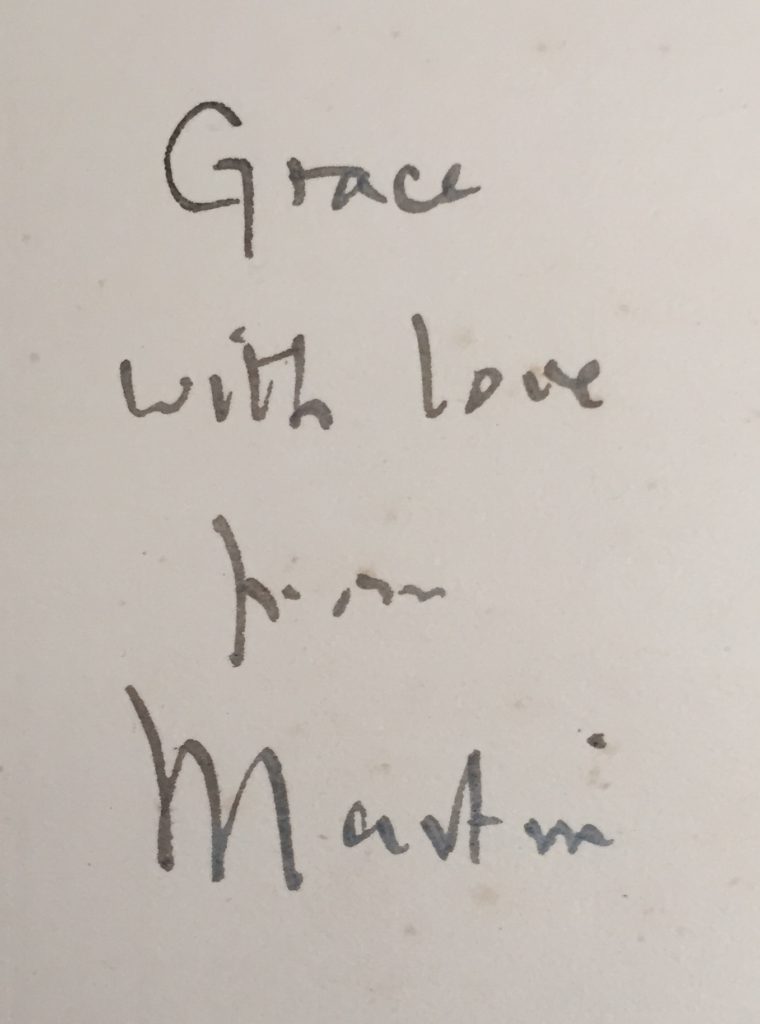 Grace
with love
from
Martin